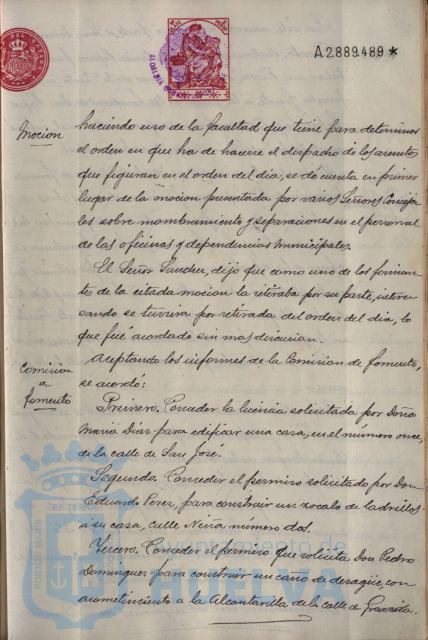 A2.889.489 *
Mocion
haciendo uso de la facultad que tiene para determinar
el orden en que ha de hacerse el despacho de los asuntos
que figuran en el orden del dia, se dé cuenta en primer
lugar de la mocion presentada por varios Señores Conceja
les sobre nombramiento y separaciones en el personal
de las oficinas y dependencias municipales.
El Señor Sanchez, dijo que como uno de los firman
tes de la citada mocion la retiraba por su parte, intere
sando se tuviera por retirada del orden del dia, lo
que fué acordado sin mas discusion.
Comision
a
fomento
Aceptando los informes de la Comision de fomento,
se acordó:
Primero. Conceder la licencia solicitada por Doña
Maria Diaz para edificar una casa, en el número once,
de la calle de San Jose.
Segundo. Conceder el permiso solicitado por Don
Eduardo Perez, para construir un zocalo de ladrillos
a su casa, calle Neira número dos.
Tercero. Conceder el permiso que solicita Don Pedro
Dominguez para construir un caño de desagüe, con
acometimiento a la Alcantarilla de la calle de Granada.
Ayuntamiento de
HUELVA